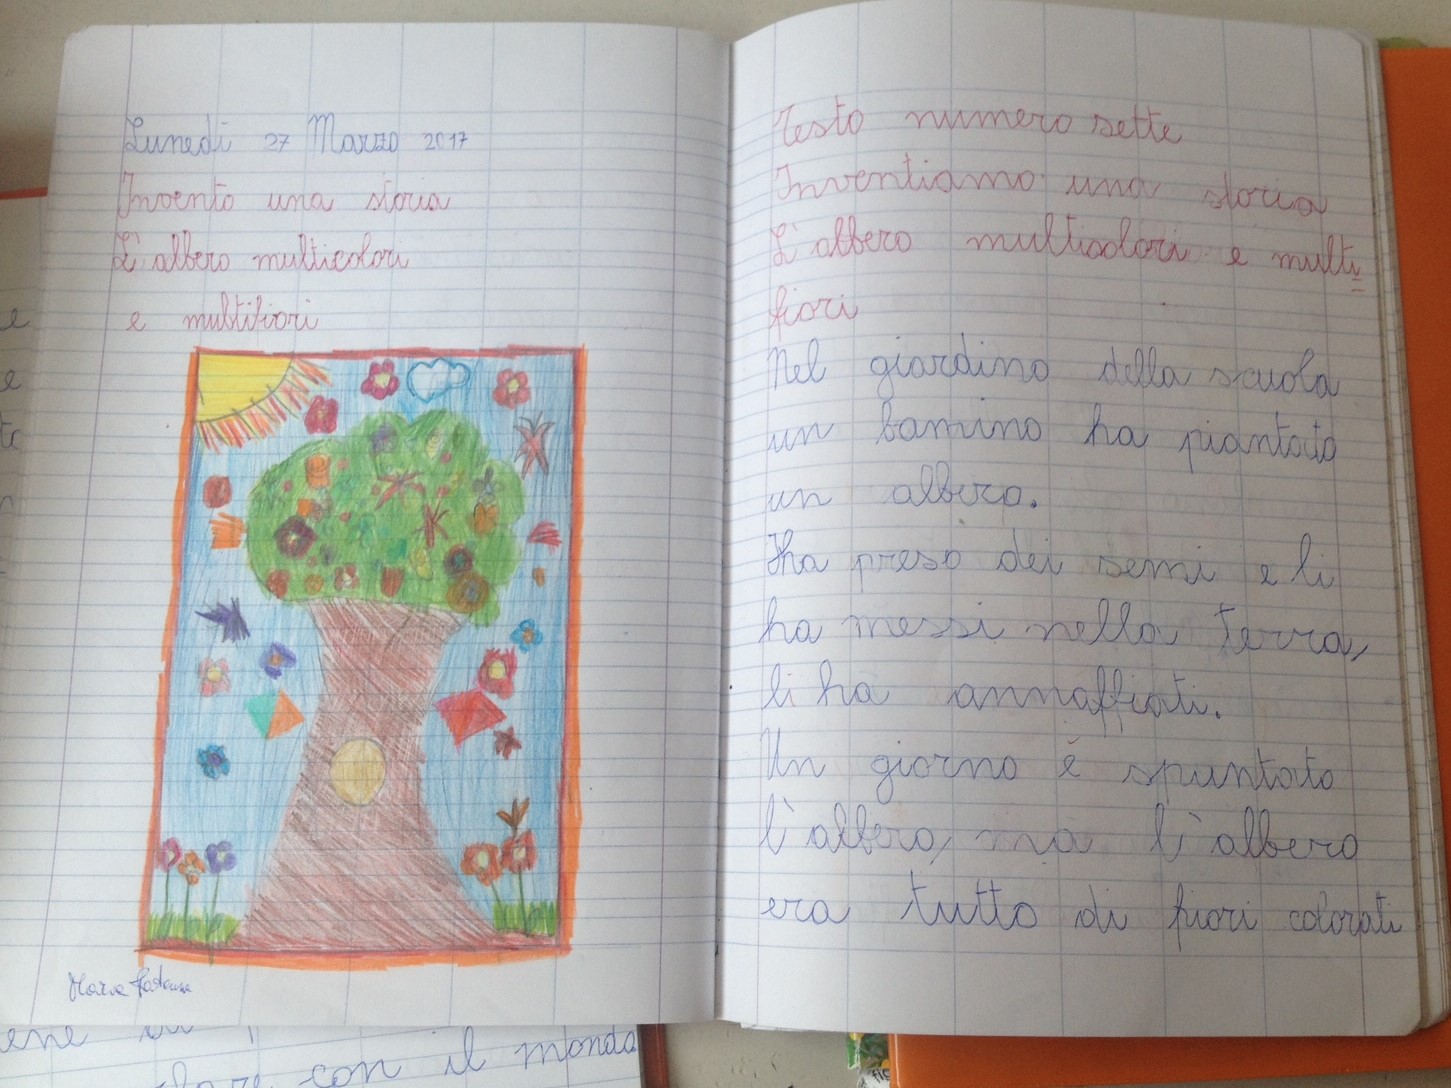 Lunedì 27 Marzo 2017
Invento una storia
L'albero multicolori
e multifiori
Testo numero sette
Inventiamo una storia
L'albero multicolori e multi=
fiori
Nel giardino della scuola
un bamino ha piantato
un albero.
Ha preso dei semi e li
ha messi nella terra,
li ha annaffiati.
Un giorno è spuntato
l'albero, ma l'albero
era tutto di fiori colorati
Maria
con il mondo